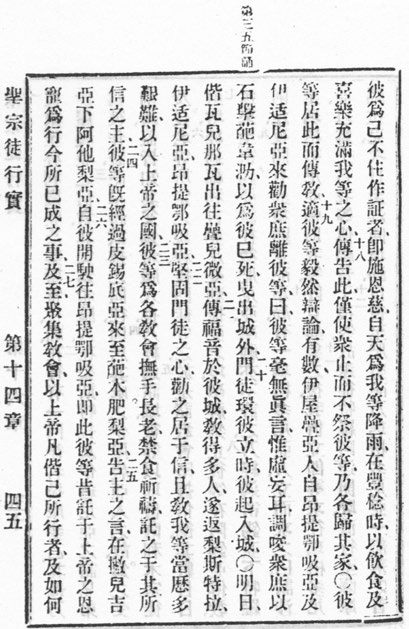 第三五節誦
彼爲己不住作証者、卽施恩慈、自天爲我等降雨、在豐稔時以飮食及
喜樂充滿我等之心、十八傳告此僅使衆止而不祭彼等、乃各歸其家、〇彼
等居此而傳敎、十九適彼等毅然辯論、有數伊屋疊亞人自昂提鄂吸亞及
伊适尼亞來勸衆庶離彼等曰、彼等毫無眞言、惟虛妄耳、調唆衆庶以
石擊葩韋泐、以爲彼已死、曳出城外、二十門徒環彼立時、彼起入城、〇明日、
偕瓦兒那瓦出往疊兒微亞、二一傳福音於彼城、敎得多人、遂返梨斯特拉、
伊适尼亞、昂提鄂吸亞、二二堅固門徒之心、勸之居于信、且敎我等當歷多
艱難、以入上帝之國、二三彼等爲各敎會撫手長老、禁食祈禱、託之于其所
信之主、二四彼等旣經過皮錫底亞、來至葩木肥梨亞、二五告主之言在撇兒吉
亞、下阿他梨亞、二六自彼開駛往昂提鄂吸亞、卽此彼等昔託于上帝之恩
寵、爲行今所已成之事、二七及至、聚集敎會、以上帝凡偕己所行者、及如何
聖宗徒行實
第十四章
四五